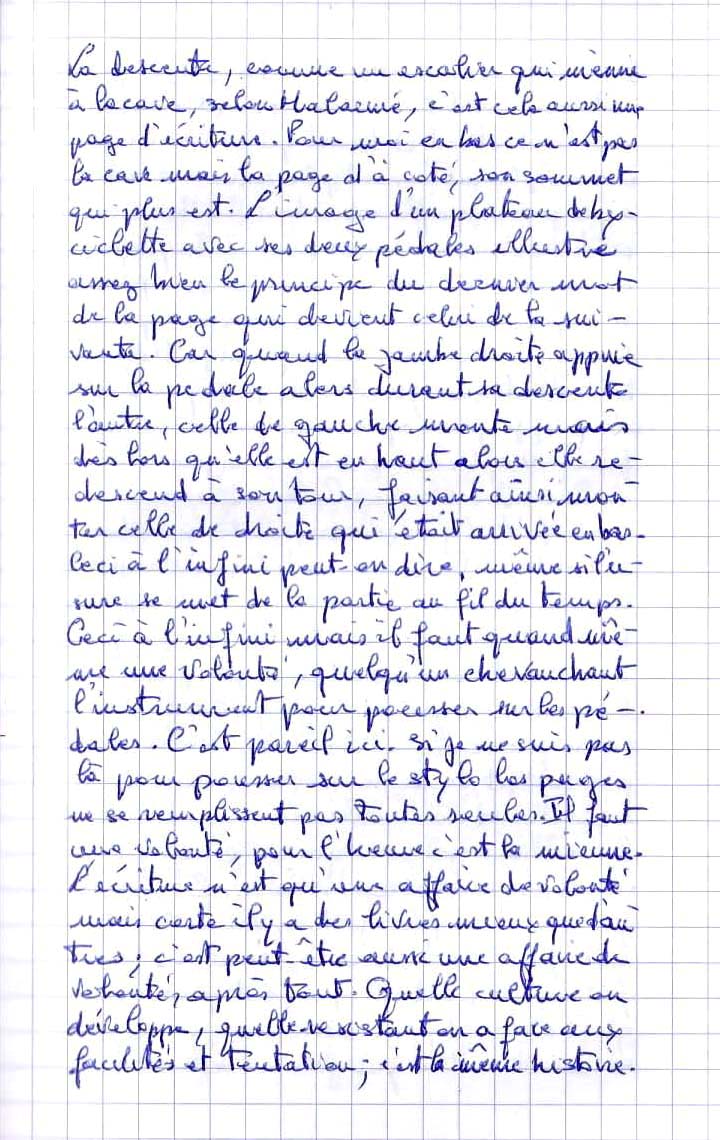 La descente, comme un escalier qui mène
à la cave, selon Malarmé, c'est cela aussi une
page d'écriture. Pour moi en bas ce n'est pas
la cave mais la page d'à coté, son sommet
qui plus est. L'image d'un plateau de by-
ciclette avec ses deux pédales illustre
assez bien le principe du dernier mot
de la page qui devient celui de la sui-
vante. Car quand la jambe droite appuie
sur la pédale alors durant sa descente
l'autre, celle de gauche monte mais
dès lors qu'elle est en haut alors elle re-
descend à son tour, faisant ainsi mon-
ter celle de droite qui était arrivée en bas.
Ceci à l'infini peut-on dire, même si l'u-
sure se met de la partie au fil du temps.
Ceci à l'infini mais il faut quand mê-
me une volonté, quelqu'un chevauchant
l'instrument pour pousser sur les pé-
dales. C'est pareil ici. Si je ne suis pas
là pour pousser sur le stylo les pages
ne se remplissent pas toutes seules. Il faut
une volonté, pour l'heure c'est la mienne.
L'écriture n'est qu'une affaire de volonté
mais certe il y a des livres mieux que d'au
tres; c'est peut-être aussi une affaire de
volonté, après tout. Quelle culture on
développe, quelle resistant on a face aux
facilités et tentation; c'est la même histoire.